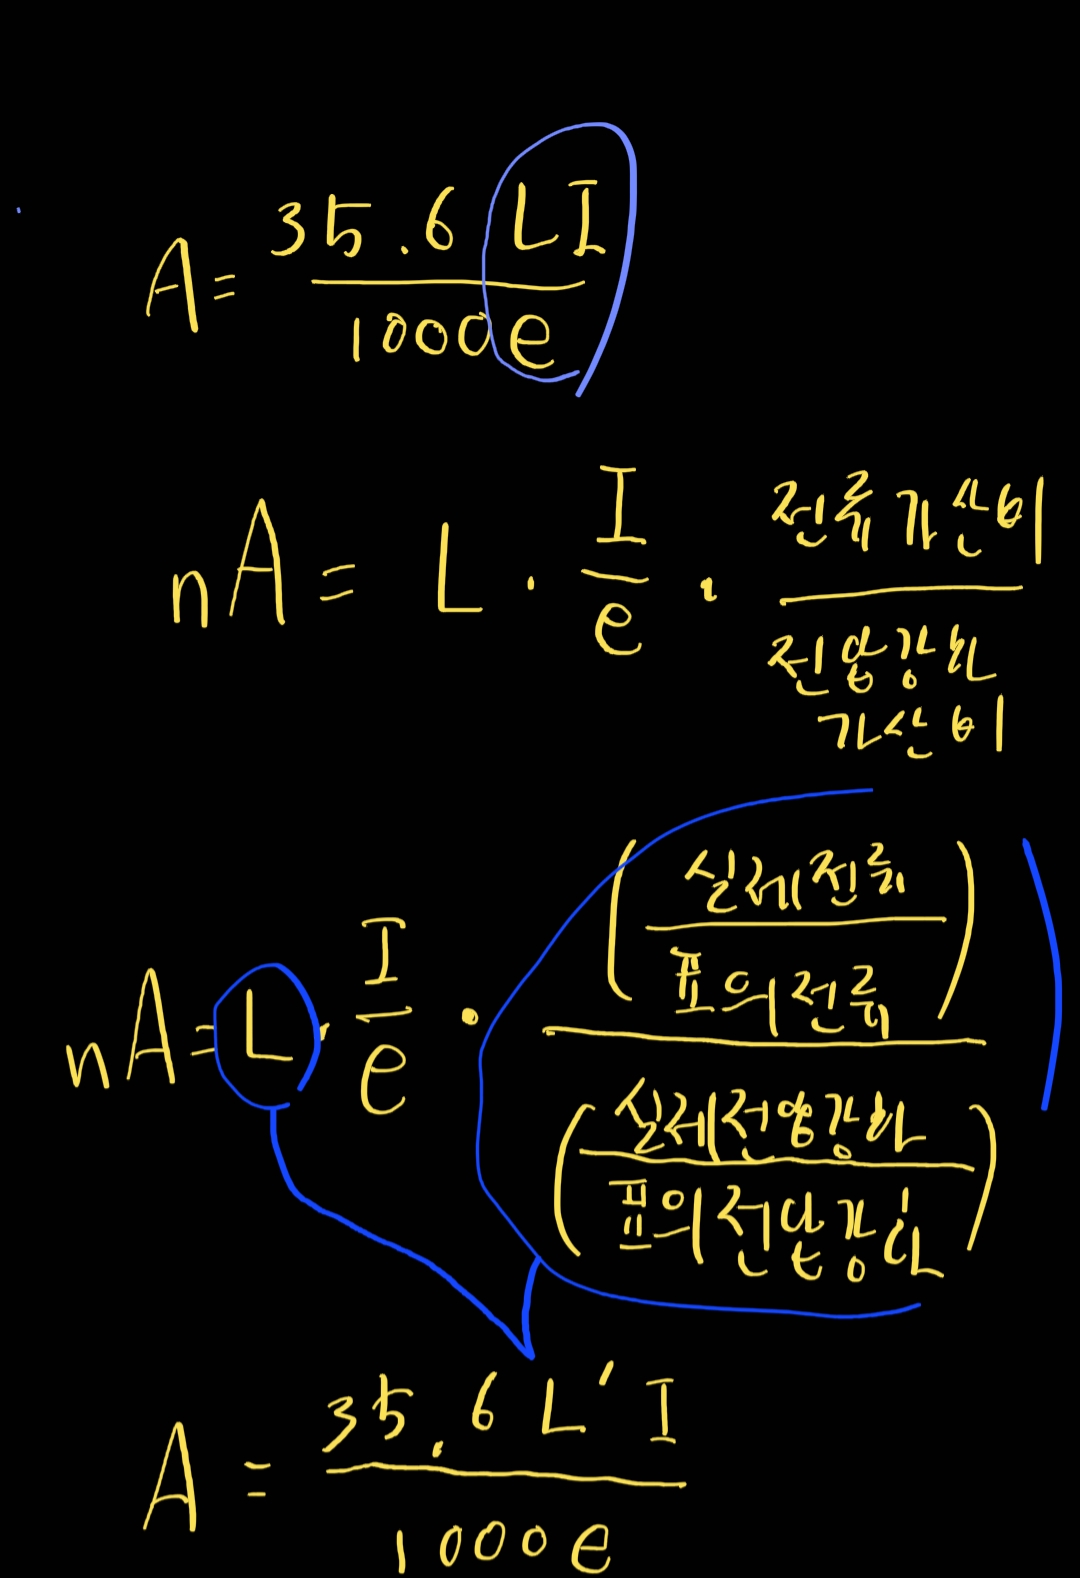 A = 35.6 LI / 1000e
nA = L · I / e · 전류가산비 / 전압강하 가산비
nA = L · I / e · (실제전류 / 표의전류) / (실제전압강하 / 표의전압강하)
A = 35.6 L' I / 1000e